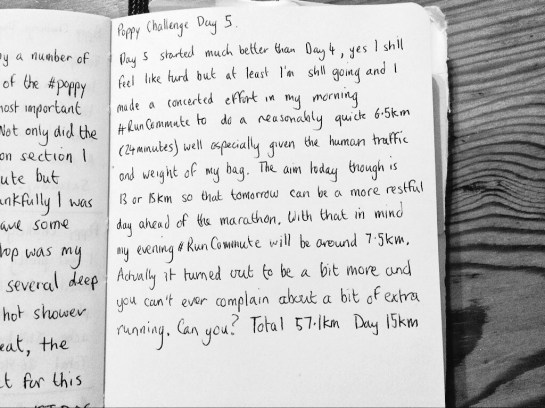 y a number of
of the #poppy
most important
Not only did the
on section I
ute but
ankfully I was
ave some
op was my
several deep
hot shower
eat, the
t for this
Poppy Challenge Day 5.
Day 5 started much better than Day 4, yes I still
feel like turd but at least I'm still going and I
made a concerted effort in my morning
#RunCommute to do a reasonably quick 6.5km
(24minutes) well especially given the human traffic
and weight of my bag. The aim today though is
13 or 15km so that tomorrow can be a more restful
day ahead of the marathon. With that in mind
my evening #RunCommute will be around 7.5km.
Actually it turned out to be a bit more and
you can't ever complain about a bit of extra
running. Can you? Total 57.1km Day 15km